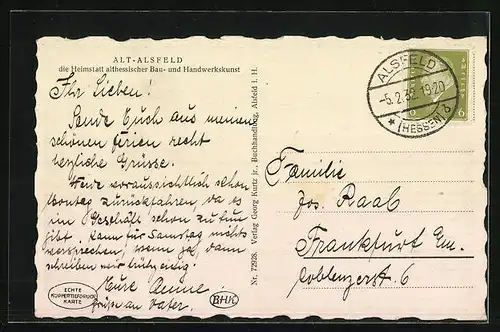 ALT-ALSFELD
die Heimstatt althessischer Bau- und Handwerkskunst
Ihr Lieben!
Sende Euch aus meinen
schönen Ferien recht
herzliche Grüsse.
Werde voraussichtlich schon
Sonntag zurückfahren, da es
im Geschäft schon zu tun
gibt. Kann für Samstag nichts
versprechen, wenn ja, dann
schreiben wir frühzeitig.
Eure
Grüße an Vater.
ECHTE
KUPFERTIEFDRUCK
KARTE
BHK
Nr. 72928. Verlag Georg Kurtz jr., Buchhandlung, Alsfeld i. H.
ALSFELD
-6.2.32 1920
(HESSEN) d
6
Familie
Jos. Raab
Frankfurt
Koblenzerst. 6